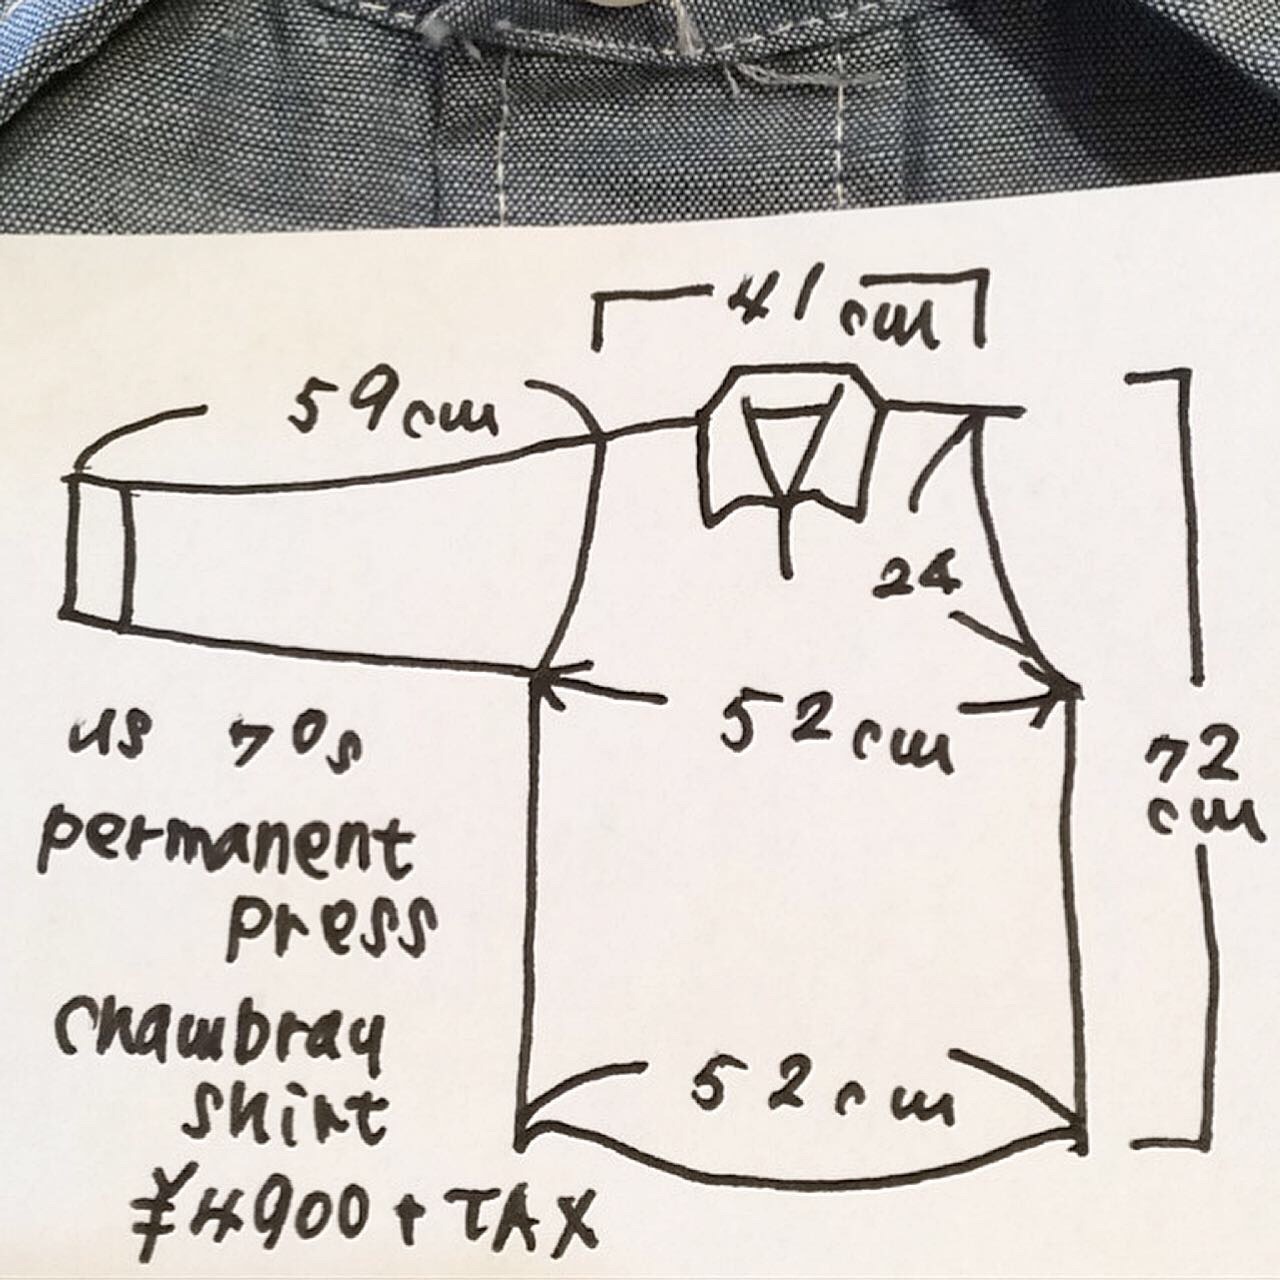 41cm
59cm
24
52cm
72
cm
us 70s
permanent
press
chambray
shirt
52cm
¥4900+TAX